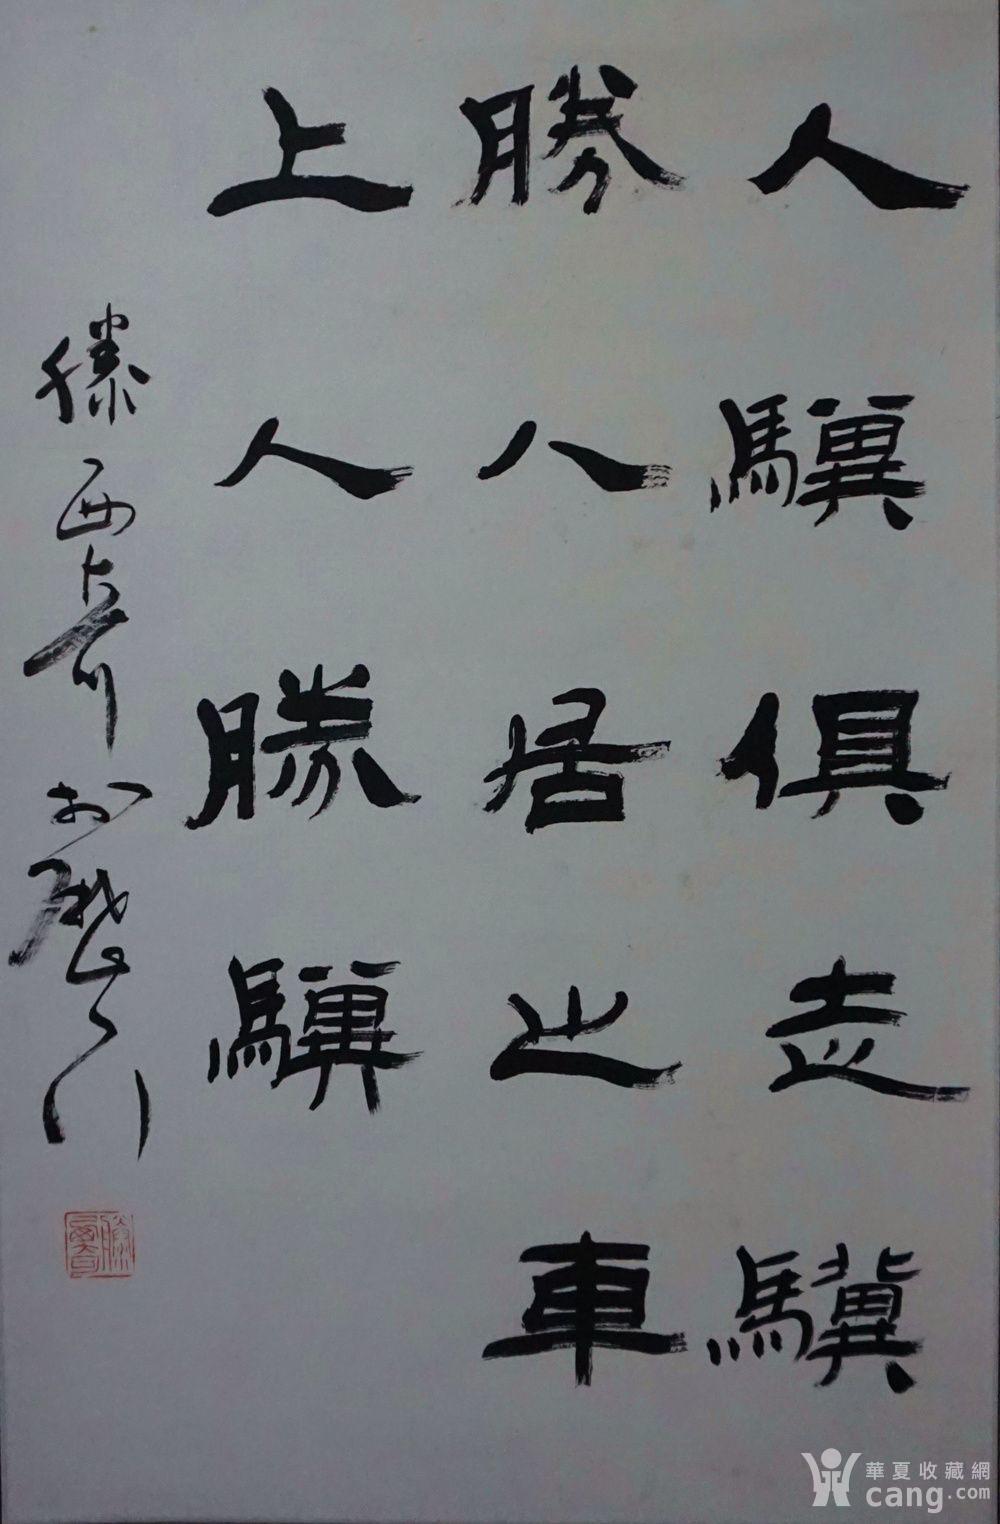 人驥俱走驥
勝人居之車
上人勝驥
滕西奇於
華夏收藏網
cang.com